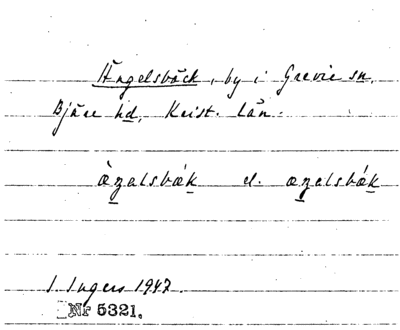 Ängelsbäck, by i Grevie sn,
Bjäre hd, Krist. län.
àŋalsbæk el. æŋelsbǽk
I. Ingers 1947.
Nr 5321.